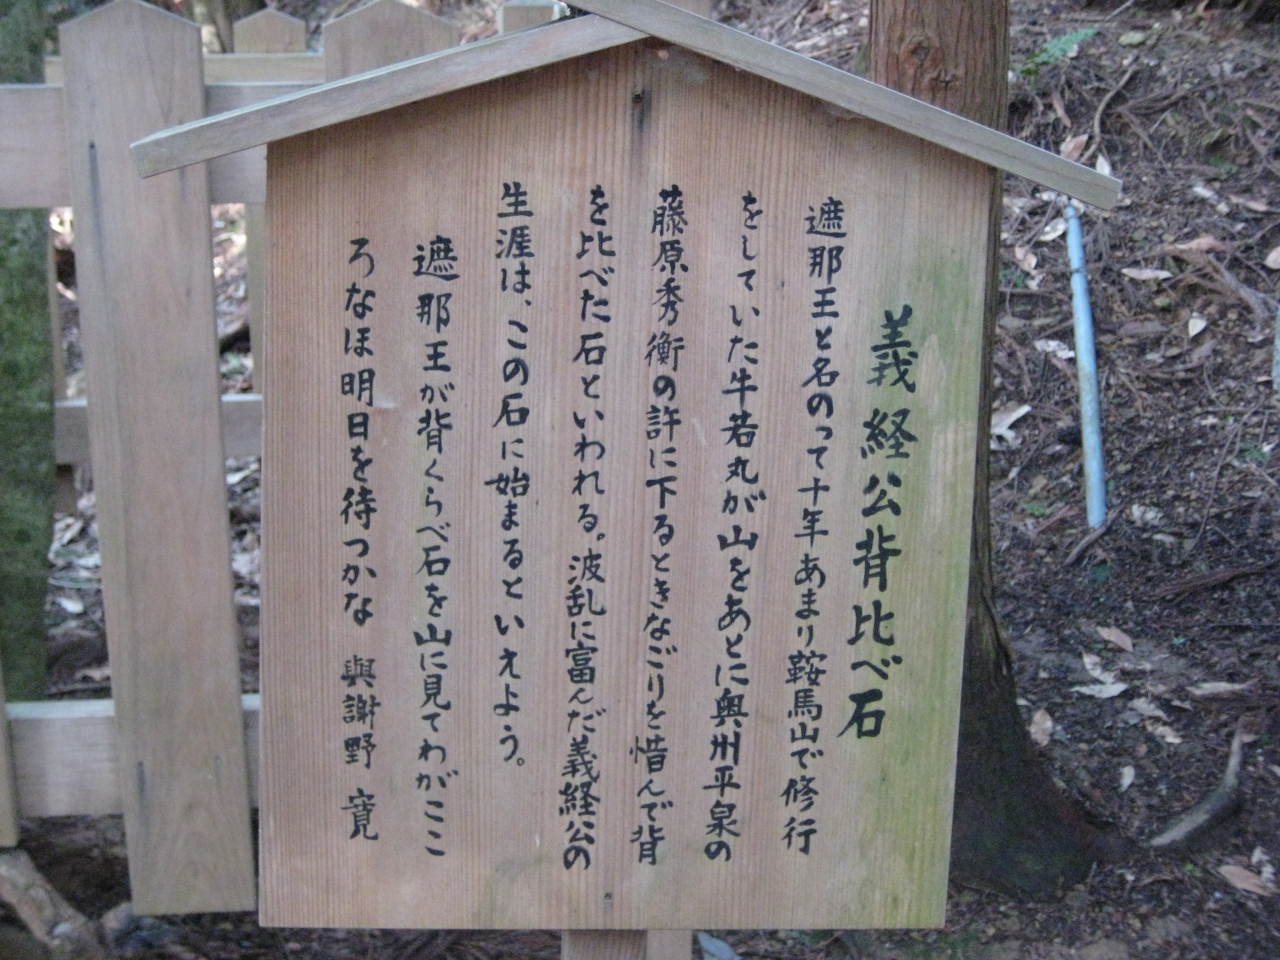 義経公背比べ石
遮那王と名のって十年あまり鞍馬山で修行
をしていた牛若丸が山をあとに奥州平泉の
藤原秀衡の許に下るときなごりを惜んで背
を比べた石といわれる。波乱に富んだ義経公の
生涯は、この石に始まるといえよう。
遮那王が背くらべ石を山に見てわがここ
ろなほ明日を待つかな 與謝野 寛